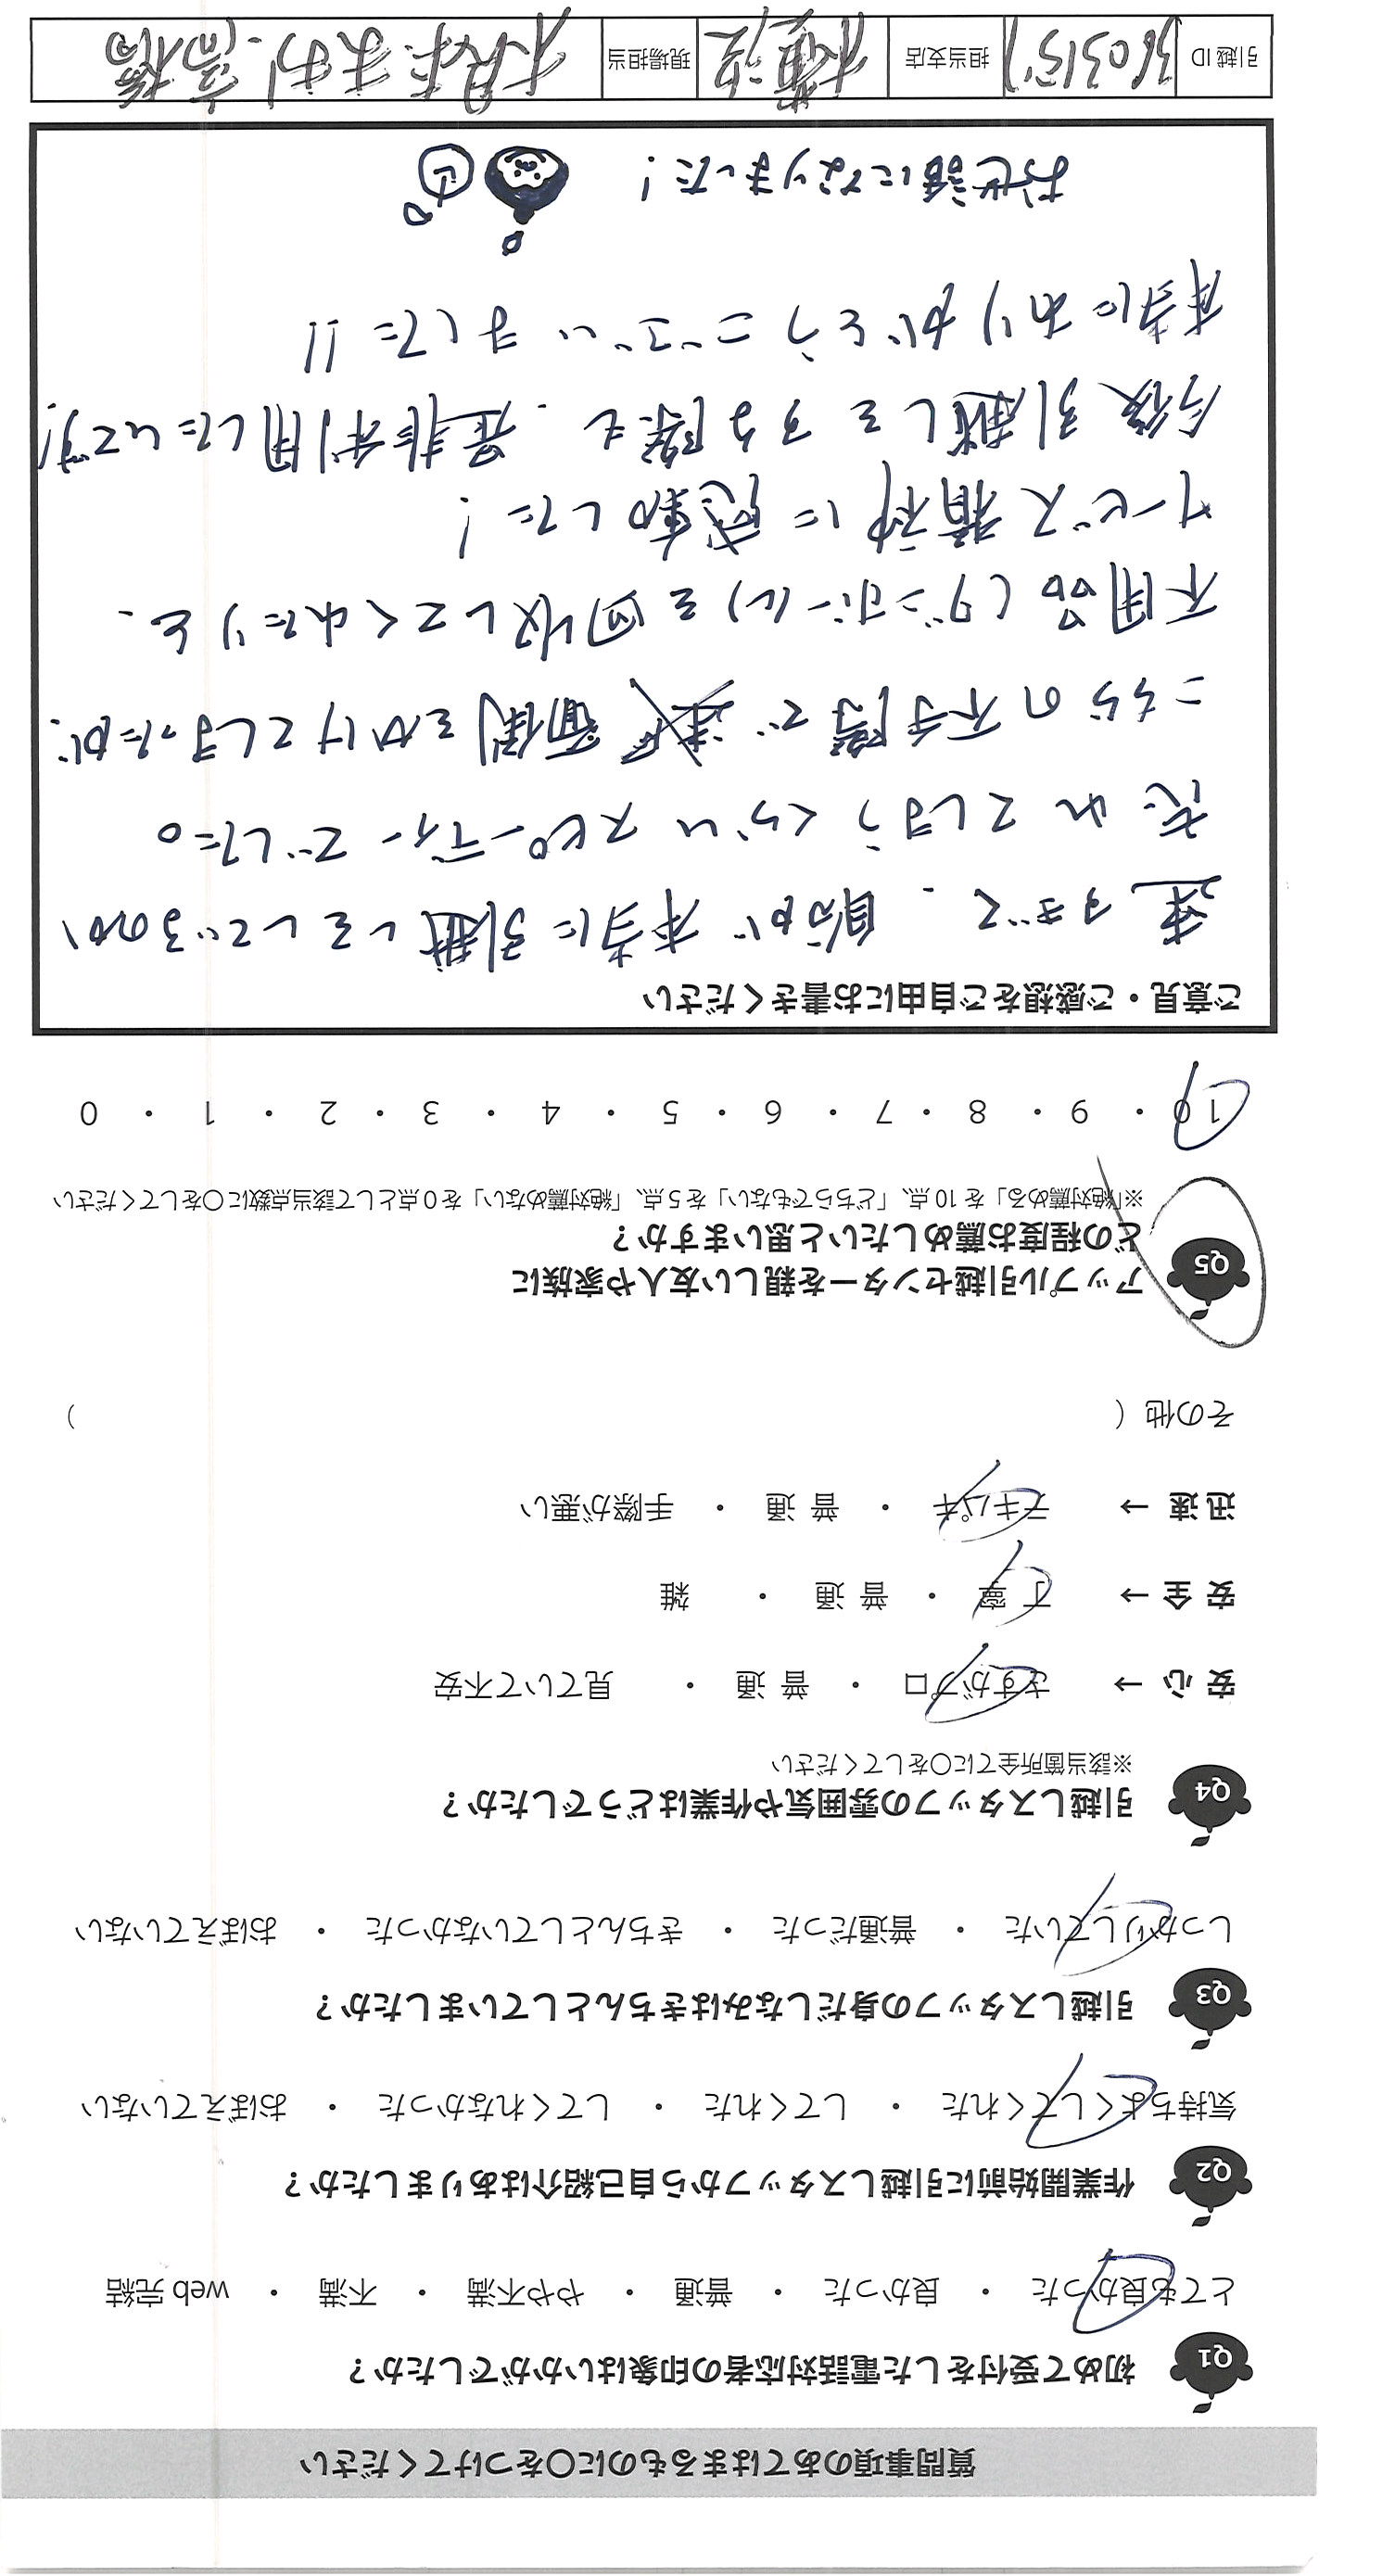 質問事項のあてはまるものに〇をつけてください
Q1 初めて受付をした電話対応者の印象はいかがでしたか？
とても良かった ・ 良かった ・ 普通 ・ やや不満 ・ 不満 ・ web 完結
Q2 作業開始前に引越しスタッフから自己紹介はありましたか？
気持ちよくしてくれた ・ してくれた ・ してくれなかった ・ おぼえていない
Q3 引越しスタッフの身だしなみはきちんとしていましたか？
しっかりしていた ・ 普通だった ・ きちんとしていなかった ・ おぼえていない
Q4 引越しスタッフの雰囲気や作業はどうでしたか？
※該当箇所全てに〇をしてください
安 心 → さすがプロ ・ 普 通 ・ 見ていて不安
安 全 → 丁 寧 ・ 普 通 ・ 雑
迅 速 → テキパキ ・ 普 通 ・ 手際が悪い
その他（ ）
Q5 アップル引越センターを親しい友人や家族に
どの程度お薦めしたいと思いますか？
※「絶対薦める」を 10 点、「どちらでもない」を 5 点、「絶対薦めない」を 0 点として該当点数に〇をしてください
10 ・ 9 ・ 8 ・ 7 ・ 6 ・ 5 ・ 4 ・ 3 ・ 2 ・ 1 ・ 0
ご意見・ご感想をご自由にお書きください
速すぎて、自分が本当に引越しをしているのか
忘れてしまうくらいスピーディーでした。
こちらの不手際で 面倒をかけてしまったが、
不用品(ダンボール)を回収してくれたりと、
サービス精神に感動した！
今後引越しをする際も、是非利用したいです!
本当にありがとうございました!!
お世話になりました！
引越 ID 3603157 担当支店 横浜 現場担当 高橋